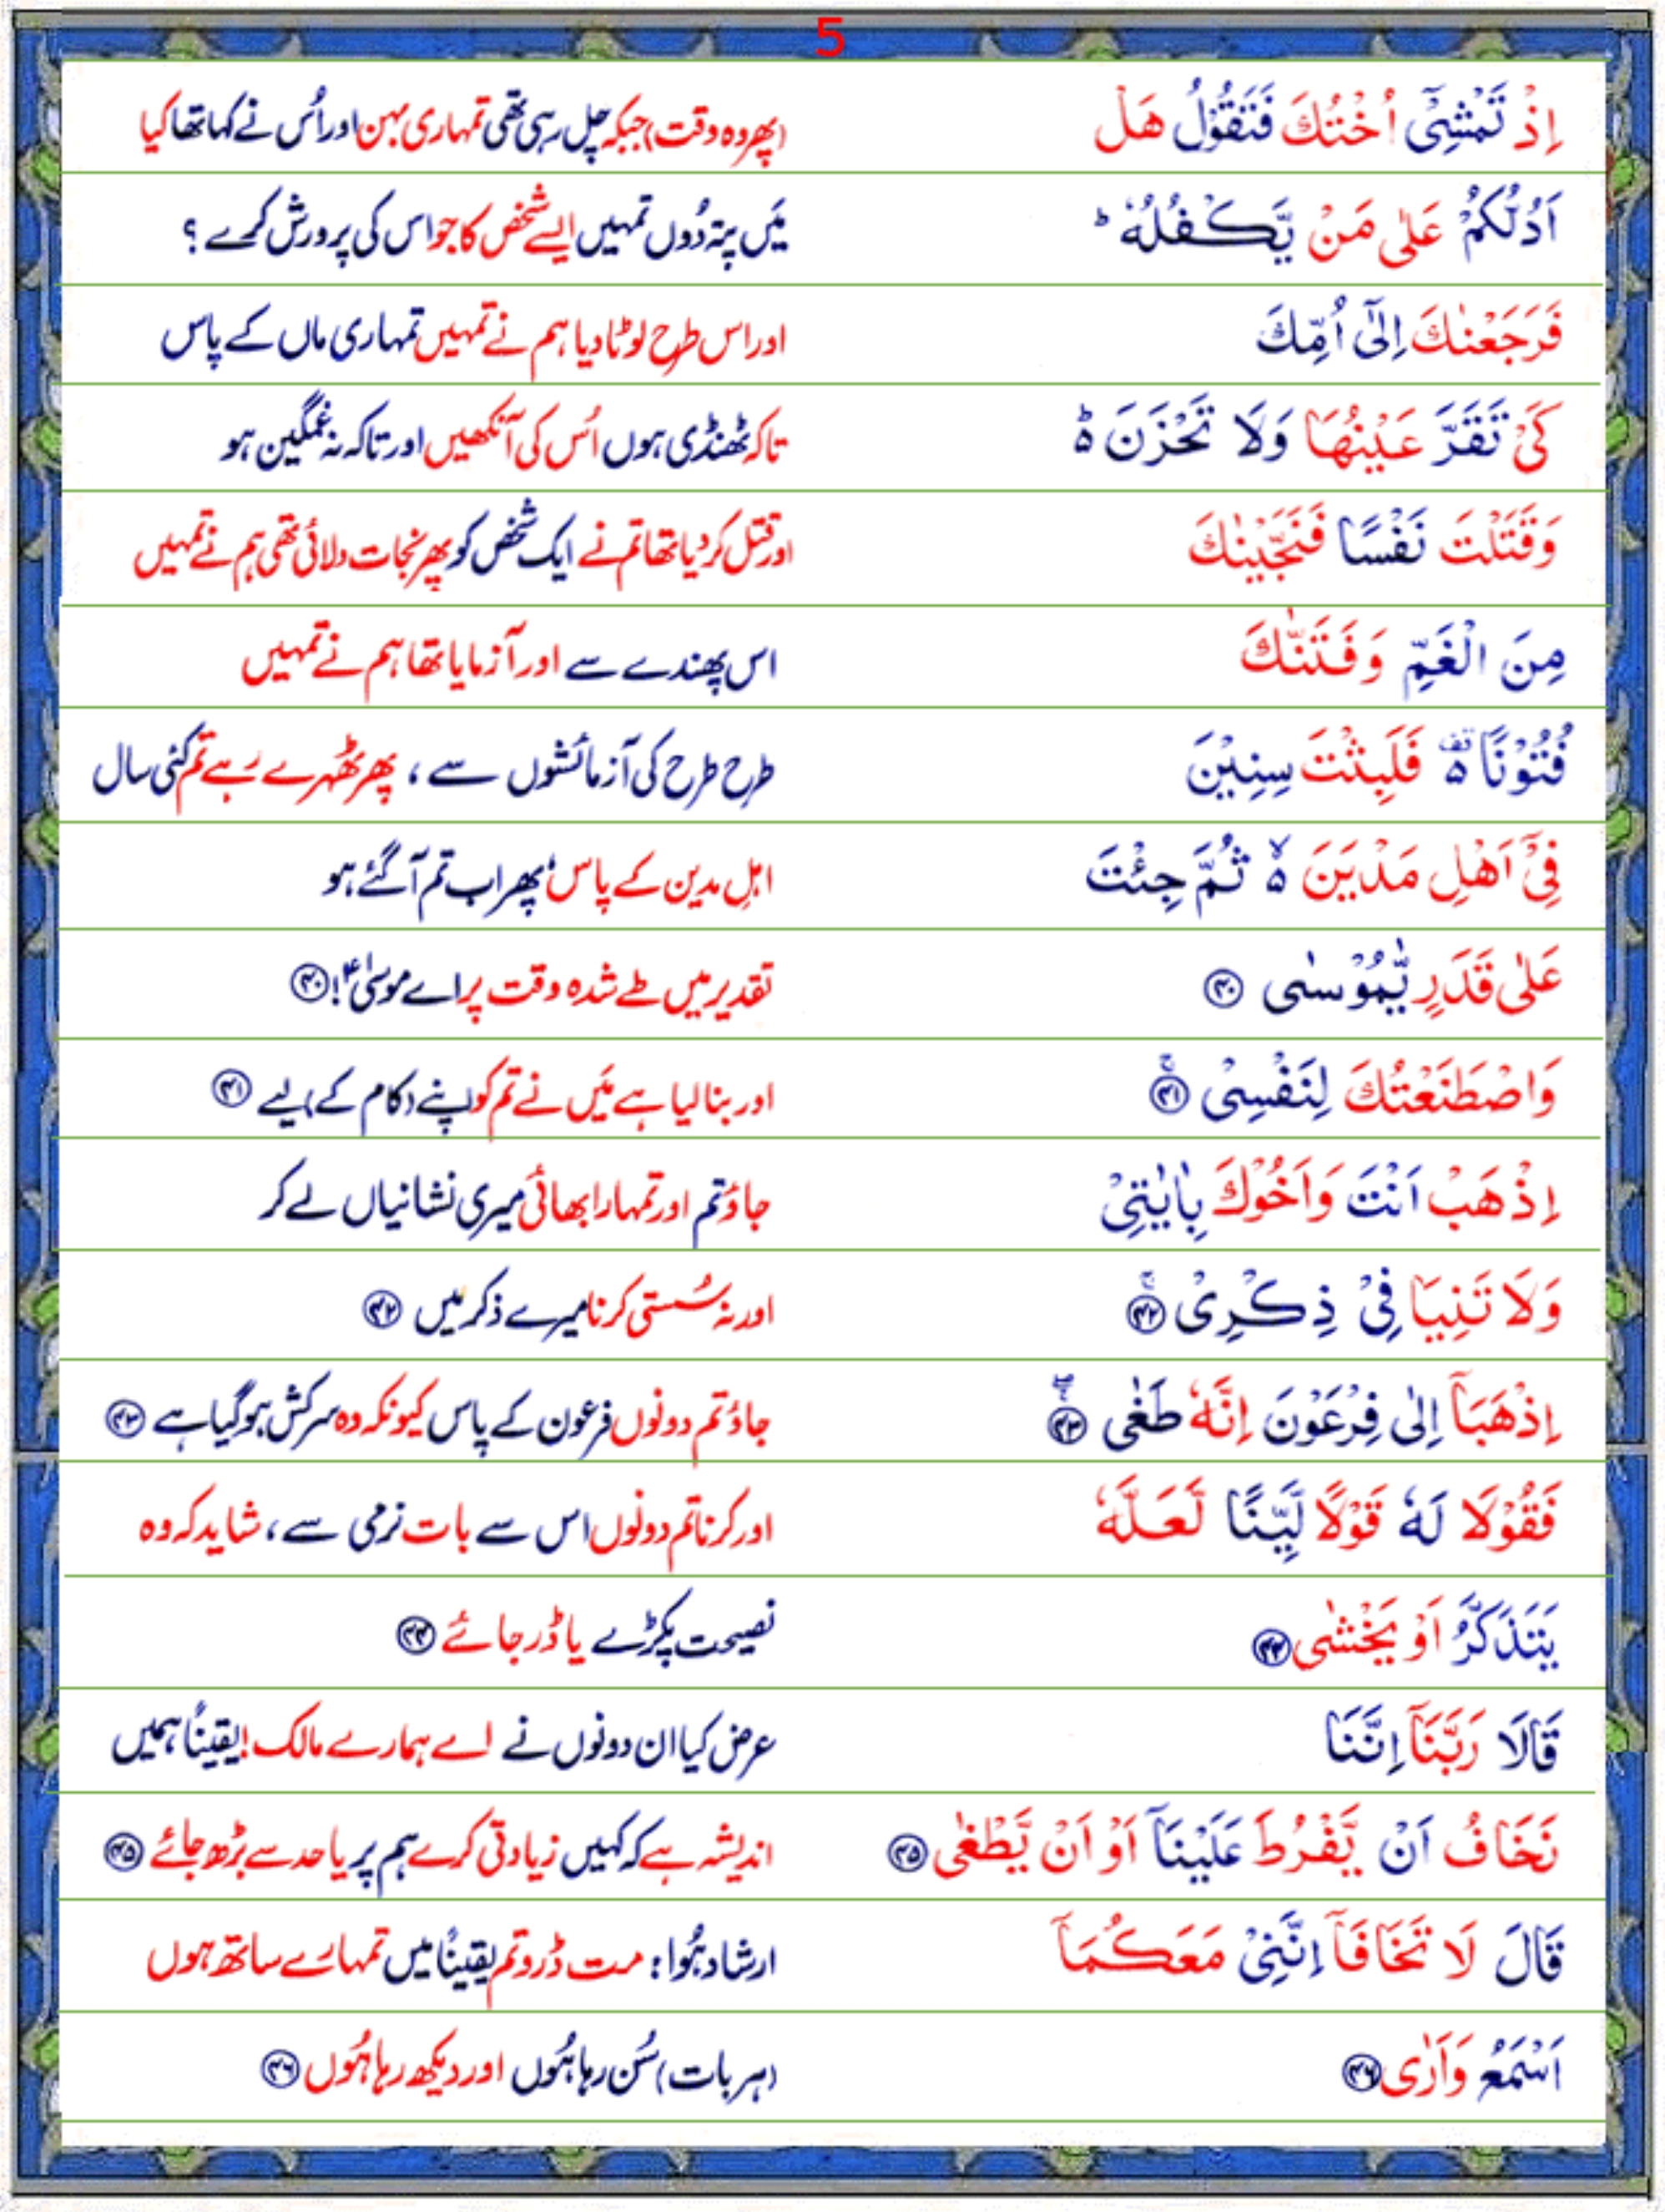 5
اِذْ تَمْشِیْۤ اُخْتُكَ فَتَقُوْلُ هَلْ (پھر وہ وقت) جبکہ چل رہی تھی تمہاری بہن اور اُس نے کہا تھا کیا
اَدُلُّكُمْ عَلٰی مَنْ یَّكْفُلُهٗ ؕ مَیں پتہ دُوں تمہیں ایسے شخص کا جو اس کی پرورش کرے ؟
فَرَجَعْنٰكَ اِلٰۤی اُمِّكَ اور اس طرح لوٹا دیا ہم نے تمہیں تمہاری ماں کے پاس
كَیْ تَقَرَّ عَیْنُهَا وَلَا تَحْزَنَ ؕ۬ تاکہ ٹھنڈی ہوں اُس کی آنکھیں اور تاکہ نہ غمگین ہو
وَقَتَلْتَ نَفْسًا فَنَجَّیْنٰكَ اور قتل کر دیا تھا تم نے ایک شخص کو پھر نجات دلائی تھی ہم نے تمہیں
مِنَ الْغَمِّ وَفَتَنّٰكَ اس پھندے سے اور آزمایا تھا ہم نے تمہیں
فُتُوْنًا ۫۬ فَلَبِثْتَ سِنِیْنَ طرح طرح کی آزمائشوں سے ، پھر ٹھہرے رہے تم کئی سال
فِیْۤ اَهْلِ مَدْیَنَ ۬ۙ ثُمَّ جِئْتَ اہلِ مدین کے پاس، پھر اب تم آ گئے ہو
عَلٰی قَدَرٍ یّٰمُوْسٰی ﴿۴۰﴾ تقدیر میں طے شدہ وقت پر اے موسٰیؑ! ﴿۴۰﴾
وَاصْطَنَعْتُكَ لِنَفْسِیْ ۚ﴿۴۱﴾ اور بنا لیا ہے مَیں نے تم کو اپنے (کام کے) لیے ﴿۴۱﴾
اِذْهَبْ اَنْتَ وَاَخُوْكَ بِاٰیٰتِیْ جاؤ تم اور تمہارا بھائی میری نشانیاں لے کر
وَلَا تَنِیَا فِیْ ذِكْرِیْ ۚ﴿۴۲﴾ اور نہ سُستی کرنا میرے ذکر میں ﴿۴۲﴾
اِذْهَبَاۤ اِلٰی فِرْعَوْنَ اِنَّهٗ طَغٰی ۚۖ﴿۴۳﴾ جاؤ تم دونوں فرعون کے پاس کیونکہ وہ سرکش ہو گیا ہے ﴿۴۳﴾
فَقُوْلَا لَهٗ قَوْلًا لَّیِّنًا لَّعَلَّهٗ اور کرنا تم دونوں اس سے بات نرمی سے، شاید کہ وہ
یَتَذَكَّرُ اَوْ یَخْشٰی ﴿۴۴﴾ نصیحت پکڑے یا ڈر جائے ﴿۴۴﴾
قَالَا رَبَّنَاۤ اِنَّنَا عرض کیا ان دونوں نے اے ہمارے مالک! یقیناً ہمیں
نَخَافُ اَنْ یَّفْرُطَ عَلَیْنَاۤ اَوْ اَنْ یَّطْغٰی ﴿۴۵﴾ اندیشہ ہے کہ کہیں زیادتی کرے ہم پر یا حد سے بڑھ جائے ﴿۴۵﴾
قَالَ لَا تَخَافَاۤ اِنَّنِیْ مَعَكُمَاۤ ارشاد ہُوا : مت ڈرو تم یقیناً میں تمہارے ساتھ ہوں
اَسْمَعُ وَاَرٰی ﴿۴۶﴾ (ہر بات) سُن رہا ہُوں اور دیکھ رہا ہُوں ﴿۴۶﴾